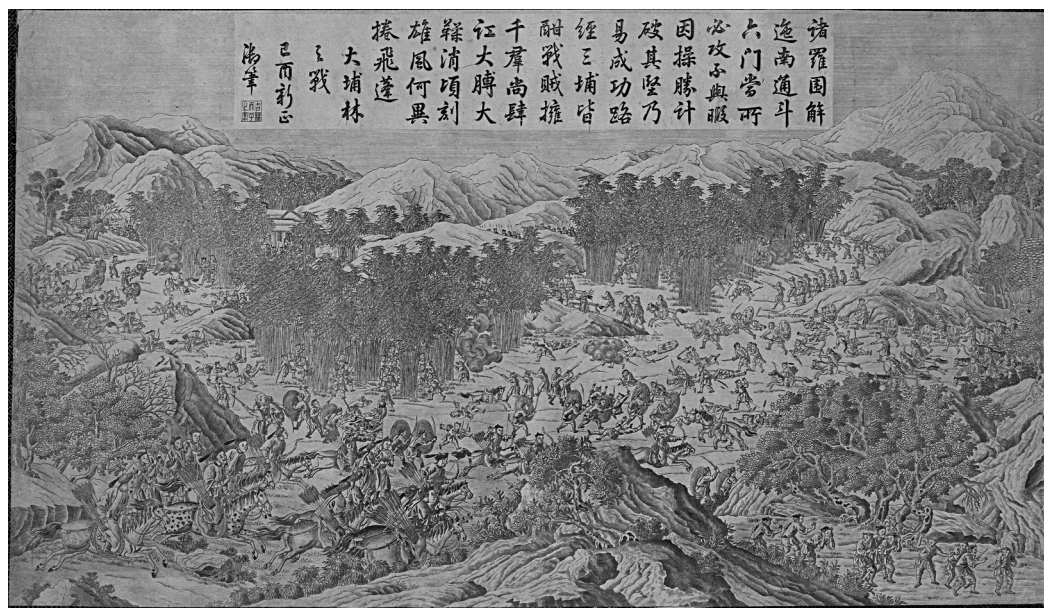 諸羅圍解
迤南通斗
六門當所
必攻不與暇
因操勝計
破其堅乃
易成功路
經三埔皆
酣戰賊擁
千羣尚肆
訌大膊大
鞣消頃刻
雄風何異
捲飛蓬
大埔林
之戰
己酉新正
御筆